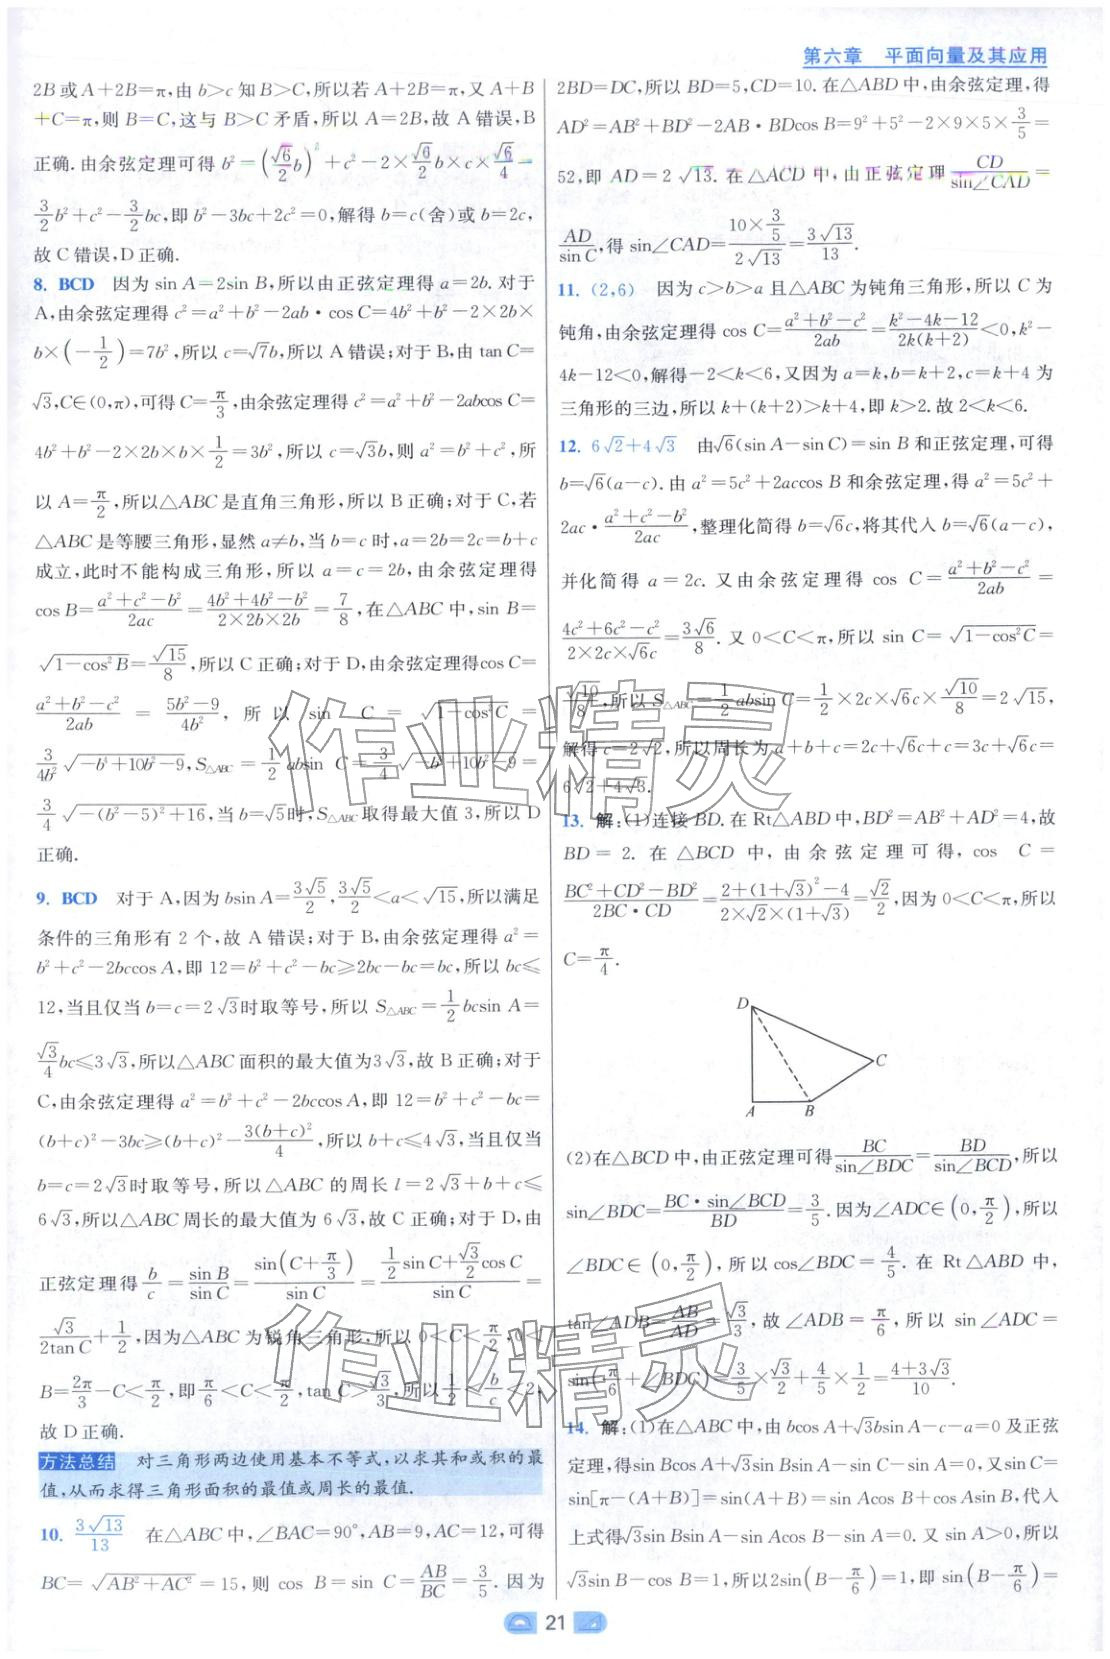 第六章 平面向量及其应用
2B或A+2B=π,由b>c知B>C,所以若A+2B=π,又A+B
+C=π,则B=C,这与B>C矛盾,所以A=2B,故A错误,B
正确.由余弦定理可得b²=(√6/2 b)²+c²-2×√6/2 b×c×√6/4=
3/2 b²+c²-3/2 bc,即b²-3bc+2c²=0,解得b=c(舍)或b=2c,
故C错误,D正确.
8. BCD 因为sin A=2sin B,所以由正弦定理得a=2b.对于
A,由余弦定理得c²=a²+b²-2ab·cos C=4b²+b²-2×2b×
b×(-1/2)=7b²,所以c=√7b,所以A错误;对于B,由tan C=
√3,C∈(0,π),可得C=π/3,由余弦定理得c²=a²+b²-2abcos C=
4b²+b²-2×2b×b×1/2=3b²,所以c=√3b,则a²=b²+c²,所
以A=π/2,所以△ABC是直角三角形,所以B正确;对于C,若
△ABC是等腰三角形,显然a≠b,当b=c时,a=2b=2c=b+c
成立,此时不能构成三角形,所以a=c=2b,由余弦定理得
cos B=(a²+c²-b²)/2ac=(4b²+4b²-b²)/(2×2b×2b)=7/8,在△ABC中,sin B=
√(1-cos²B)=√15/8,所以C正确;对于D,由余弦定理得cos C=
(a²+b²-c²)/2ab=(5b²-9)/4b²,所以sin C=√(1-cos²C)=
3/4b² √(-b⁴+10b²-9),S△ABC=1/2 absin C=3/4 √(-b⁴+10b²-9)=
3/4 √(-(b²-5)²+16),当b=√5时,S△ABC取得最大值3,所以D
正确.
9. BCD 对于A,因为bsin A=3√5/2,3√5/2<a<√15,所以满足
条件的三角形有2个,故A错误;对于B,由余弦定理得a²=
b²+c²-2bccos A,即12=b²+c²-bc≥2bc-bc=bc,所以bc≤
12,当且仅当b=c=2√3时取等号,所以S△ABC=1/2 bcsin A=
√3/4 bc≤3√3,所以△ABC面积的最大值为3√3,故B正确;对于
C,由余弦定理得a²=b²+c²-2bccos A,即12=b²+c²-bc=
(b+c)²-3bc≥(b+c)²-3(b+c)²/4,所以b+c≤4√3,当且仅当
b=c=2√3时取等号,所以△ABC的周长l=2√3+b+c≤
6√3,所以△ABC周长的最大值为6√3,故C正确;对于D,由
正弦定理得b/c=sin B/sin C=sin(C+π/3)/sin C=(1/2 sin C+√3/2 cos C)/sin C=
√3/2tan C+1/2,因为△ABC为锐角三角形,所以0<C<π/2,0<
B=2π/3-C<π/2,即π/6<C<π/2,tan C>√3/3,所以1/2<b/c<2,
故D正确.
方法总结 对三角形两边使用基本不等式,以求其和或积的最
值,从而求得三角形面积的最值或周长的最值.
10. 3√13/13 在△ABC中,∠BAC=90°,AB=9,AC=12,可得
BC=√(AB²+AC²)=15,则cos B=sin C=AB/BC=3/5.因为
2BD=DC,所以BD=5,CD=10.在△ABD中,由余弦定理,得
AD²=AB²+BD²-2AB·BDcos B=9²+5²-2×9×5×3/5=
52,即AD=2√13.在△ACD中,由正弦定理CD/sin∠CAD=
AD/sin C,得sin∠CAD=(10×3/5)/2√13=3√13/13.
11. (2,6) 因为c>b>a且△ABC为钝角三角形,所以C为
钝角,由余弦定理得cos C=(a²+b²-c²)/2ab=(k²-4k-12)/2k(k+2)<0,k²-
4k-12<0,解得-2<k<6,又因为a=k,b=k+2,c=k+4为
三角形的三边,所以k+(k+2)>k+4,即k>2.故2<k<6.
12. 6√2+4√3 由√6(sin A-sin C)=sin B和正弦定理,可得
b=√6(a-c).由a²=5c²+2accos B和余弦定理,得a²=5c²+
2ac·(a²+c²-b²)/2ac,整理化简得b=√6c,将其代入b=√6(a-c),
并化简得a=2c.又由余弦定理得cos C=(a²+b²-c²)/2ab=
(4c²+6c²-c²)/(2×2c×√6c)=3√6/8.又0<C<π,所以sin C=√(1-cos²C)=
√10/8,所以S△ABC=1/2 absin C=1/2×2c×√6c×√10/8=2√15,
解得c=2√2,所以周长为a+b+c=2c+√6c+c=3c+√6c=
6√2+4√3.
13. 解:(1)连接BD.在Rt△ABD中,BD²=AB²+AD²=4,故
BD=2.在△BCD中,由余弦定理可得,cos C=
(BC²+CD²-BD²)/2BC·CD=(2+(1+√3)²-4)/(2×√2×(1+√3))=√2/2,因为0<C<π,所以
C=π/4.
D
C
A B
(2)在△BCD中,由正弦定理可得BC/sin∠BDC=BD/sin∠BCD,所以
sin∠BDC=BC·sin∠BCD/BD=3/5.因为∠ADC∈(0,π/2),所以
∠BDC∈(0,π/2),所以cos∠BDC=4/5.在Rt△ABD中,
tan∠ADB=AB/AD=√3/3,故∠ADB=π/6,所以sin∠ADC=
sin(π/6+∠BDC)=3/5×√3/2+4/5×1/2=(4+3√3)/10.
14. 解:(1)在△ABC中,由bcos A+√3bsin A-c-a=0及正弦
定理,得sin Bcos A+√3sin Bsin A-sin C-sin A=0,又sin C=
sin[π-(A+B)]=sin(A+B)=sin Acos B+cos Asin B,代入
上式得√3sin Bsin A-sin Acos B-sin A=0.又sin A>0,所以
√3sin B-cos B=1,所以2sin(B-π/6)=1,即sin(B-π/6)=
21
作业精灵
作业精灵